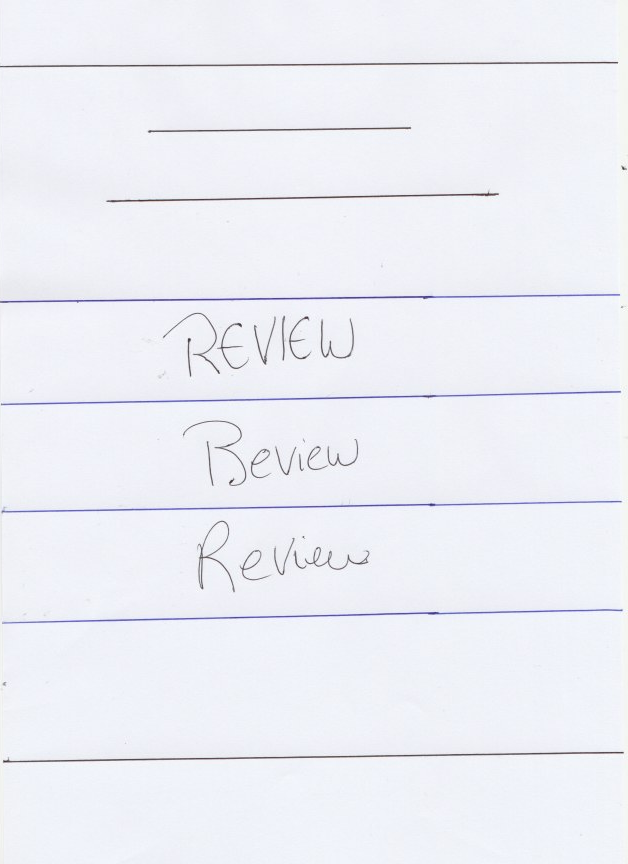 REVIEW
Review
Review